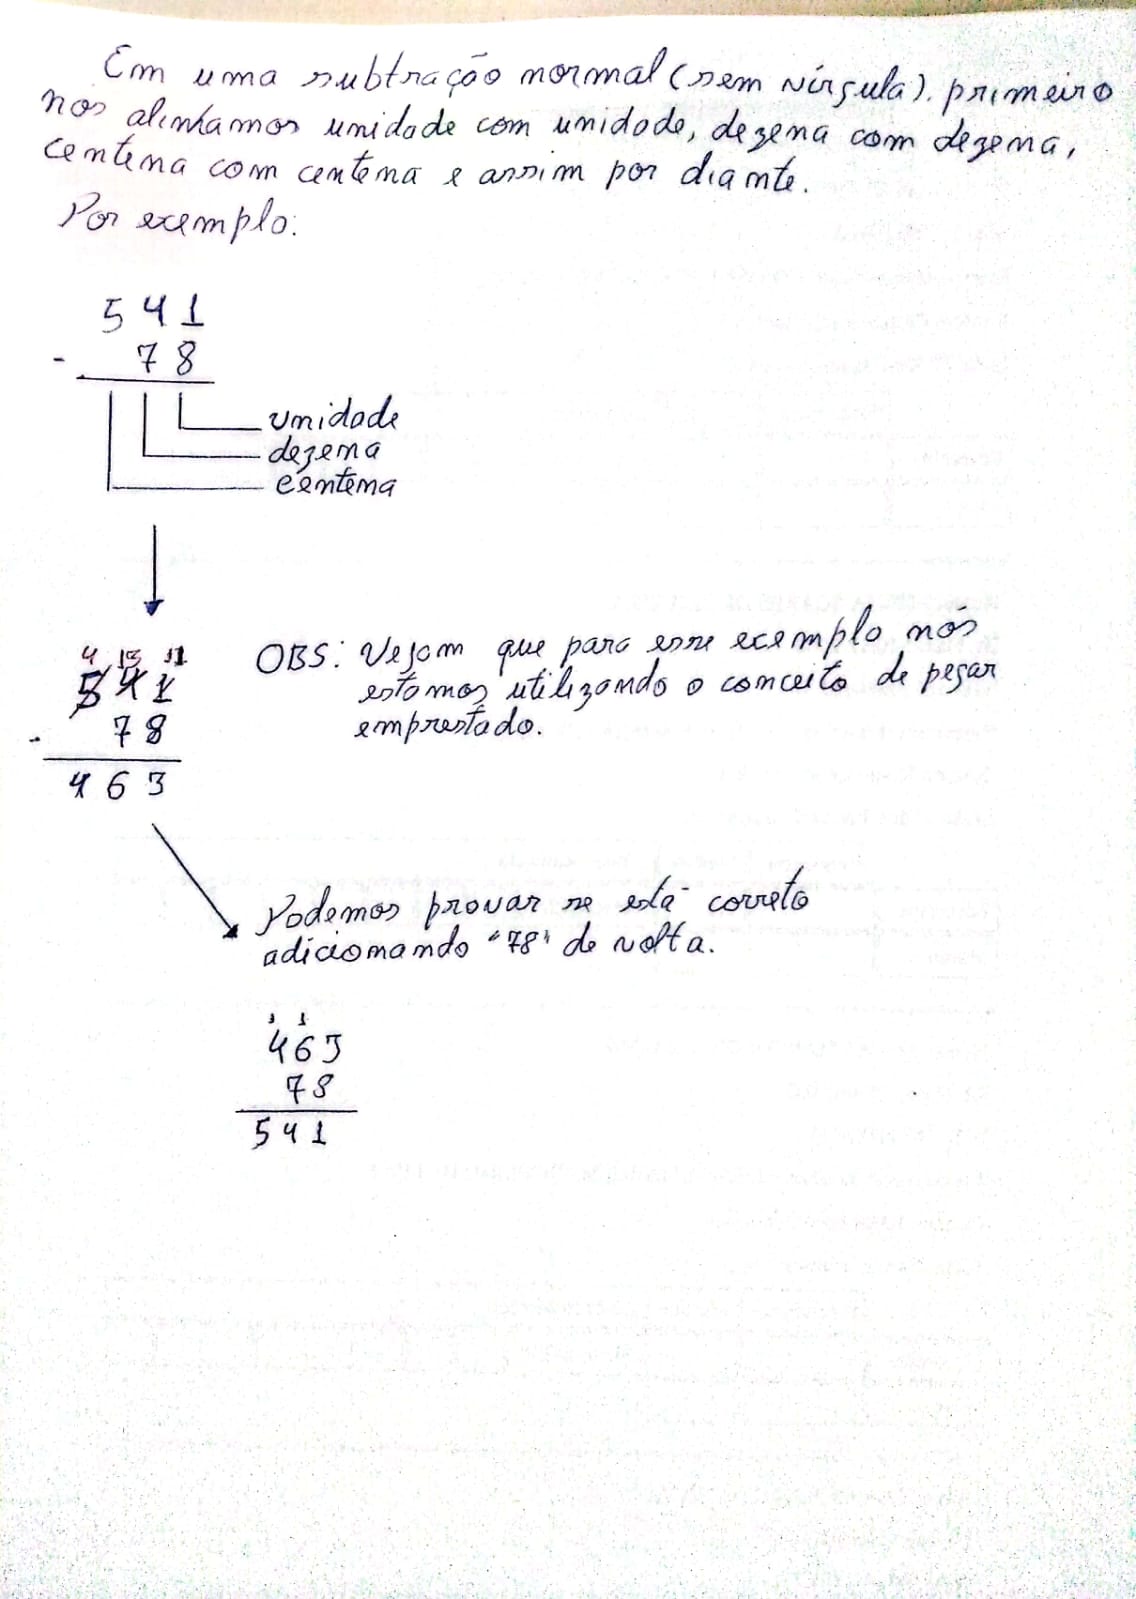 Em uma subtração normal (sem vírgula). primeiro
nós alinhamos unidade com unidade, dezena com dezena,
centena com centena e assim por diante.
Por exemplo:
541
- 78
unidade
dezena
centena
4 13 11
541
- 78
463
OBS: Vejam que para esse exemplo, nós
estamos utilizando o conceito de pegar
emprestado.
Podemos provar se está correto
adicionando "78" de volta.
1 1
463
78
541